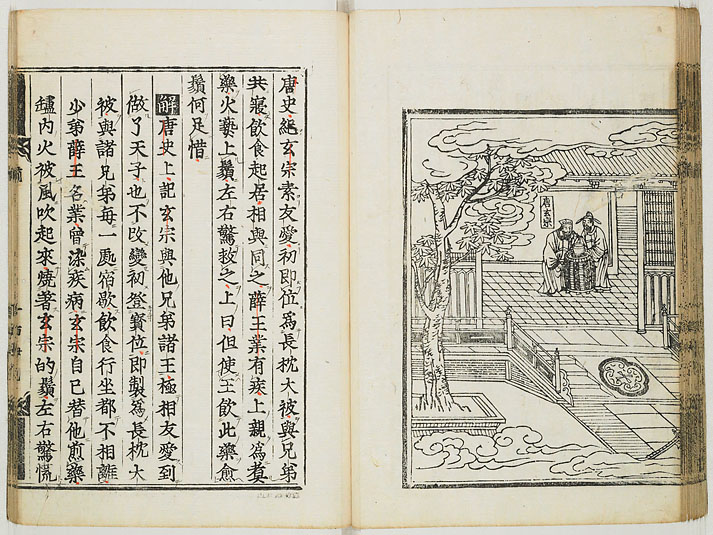 唐玄宗
唐史紀玄宗素友愛初即位為長枕大被與兄弟
共寢飲食起居相與同之薛王業有疾上親為煮
藥火爇上鬚左右驚救之上曰但使王飲此藥愈
鬚何足惜
解唐史上記玄宗與他兄弟諸王極相友愛到
做了天子也不改變初登寳位即製為長枕大
被與諸兄弟每一處宿歇飲食行坐都不相離
少弟薛王名業曾染疾病玄宗自己替他煎藥
鑪内火被風吹起來燒著玄宗的鬚左右驚慌